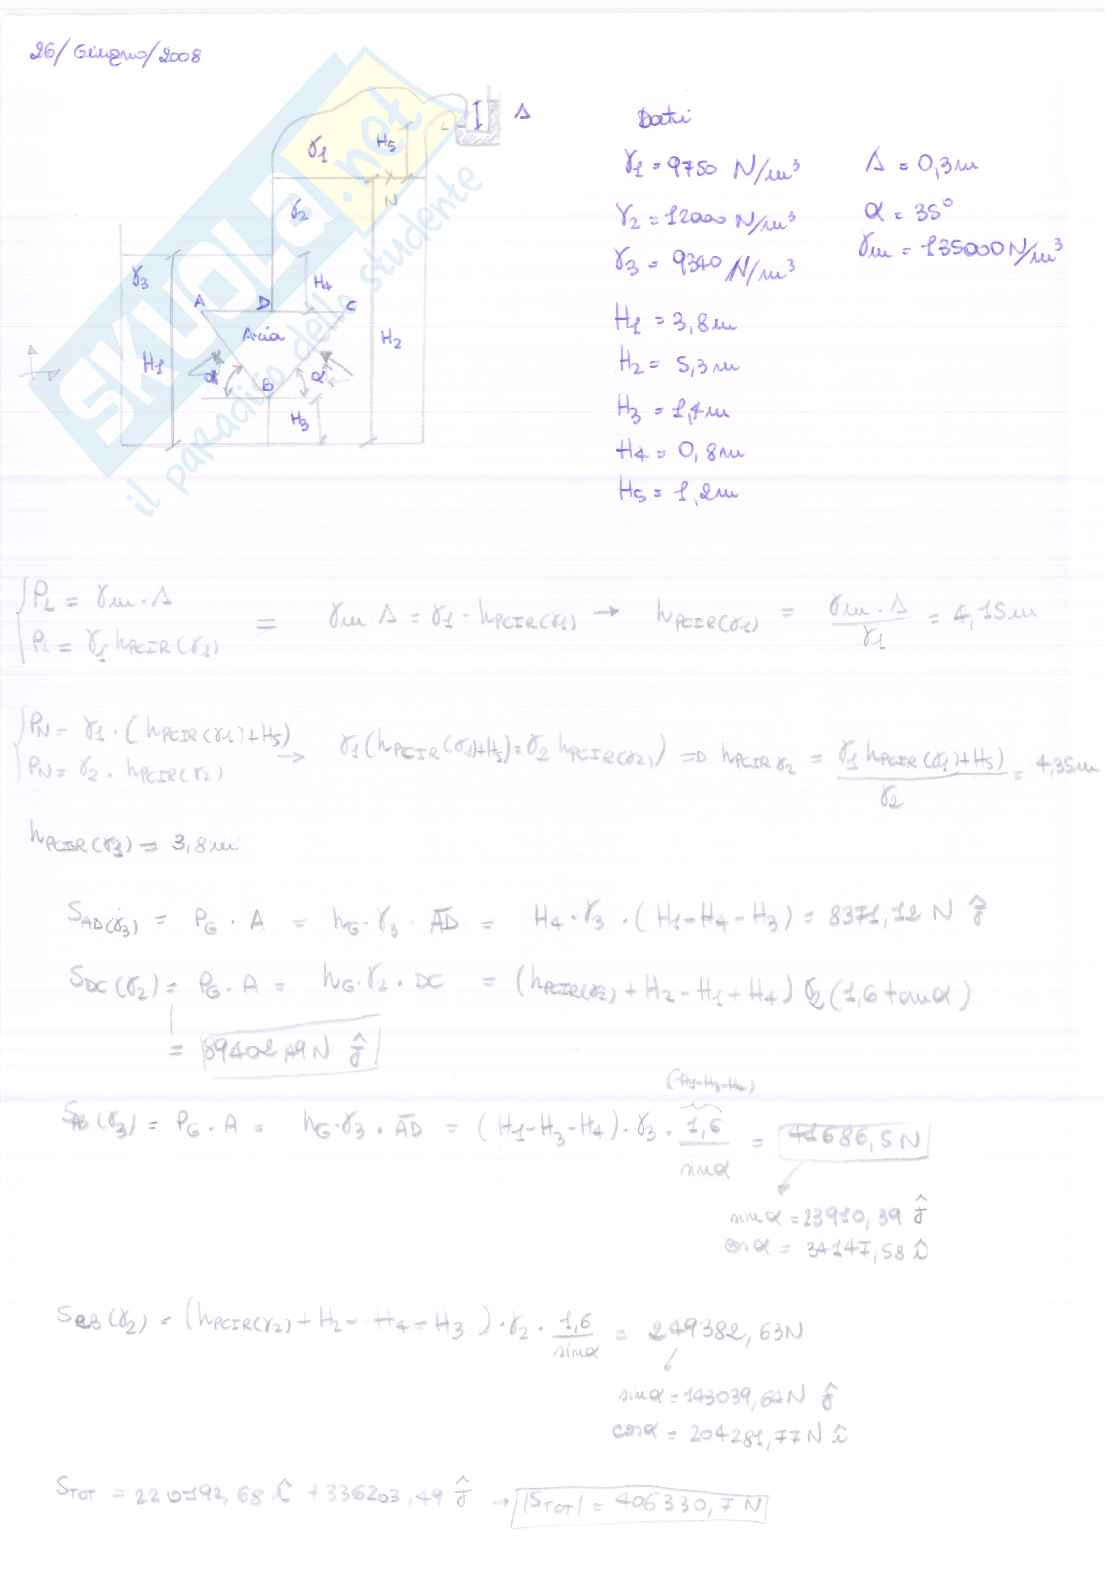 26/Giugno/2008
Δ
γ1
H5
N
γ2
γ3
H4
A
D
C
Aria
H1
H2
α
B
α
H3
SKUOLA.net
il paradiso dello studente
Dati
γ1 = 9750 N/m³ Δ = 0,3m
γ2 = 12000 N/m³ α = 35°
γ3 = 9340 N/m³ γm = 135000 N/m³
H1 = 3,8m
H2 = 5,3m
H3 = 1,4m
H4 = 0,8m
H5 = 1,2m
PL = γm · Δ
PL = γ1 hPCIR(γ1) = γm Δ = γ1 · hPCIR(γ1) → hPCIR(γ1) = γm · Δ / γ1 = 4,15m
PN = γ1 · (hPCIR(γ1) + H5)
PN = γ2 · hPCIR(γ2) → γ1(hPCIR(γ1)+H5) = γ2 hPCIR(γ2) ⇒ hPCIR γ2 = γ1 hPCIR(γ1)+H5) / γ2 = 4,35m
hPCIR(γ3) = 3,8m
SAD(γ3) = PG · A = hG · γ3 · AD = H4 · γ3 · (H1-H4-H3) = 8371,12 N ĵ
SDC(γ2) = PG · A = hG · γ2 · DC = (hPCIR(γ2) + H2 - H1 + H4) γ2 (1,6 tanα)
= 89402,49 N ĵ
(H1-H3-H4)
SAB(γ3) = PG · A = hG · γ3 · AD = (H1-H3-H4) · γ3 · 1,6 / sinα = 41686,5 N
sinα = 23910,39 ĵ
cosα = 34147,58 î
SCB(γ2) = (hPCIR(γ2) + H2 - H4 - H3) · γ2 · 1,6 / sinα = 249382,63N
sinα = 143039,61 N ĵ
cosα = 204281,77 N î
STOT = 220192,68 î + 336203,49 ĵ → |STOT| = 406330,7 N